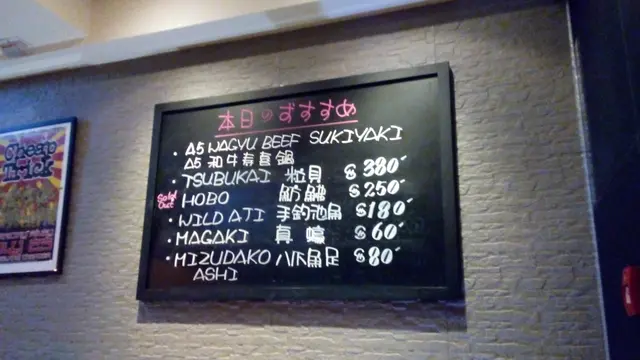 本日のおすすめ
· A5 WAGYU BEEF SUKIYAKI
A5 和牛寿喜鍋 $380
· TSUBUKAI 粒貝 $250
Sold Out HOBO 魴鮄 $180
· WILD ATI 手釣池魚 $60
· MAGAKI 真蠔 $80
· MIZUDAKO 八爪魚足
ASHI
Cheap Trick